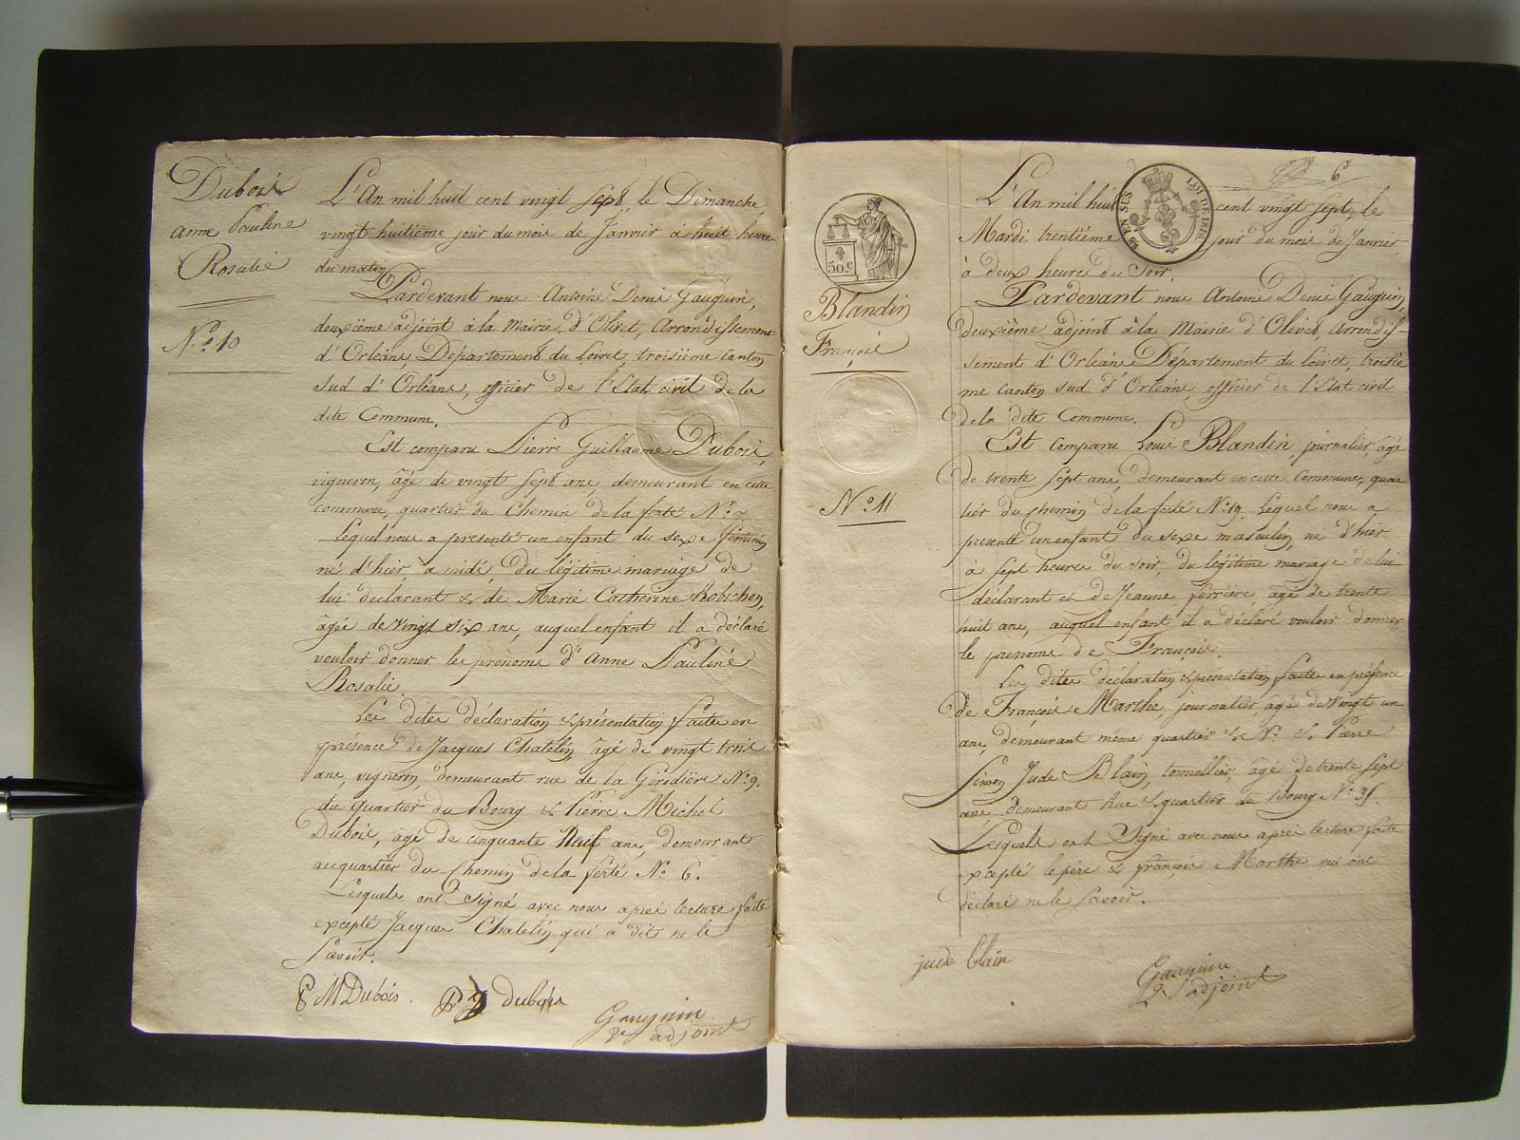 Dubois
anne Pauline
Rosalie
N.° 10
L'An mil huit cent vingt sept, le Dimanche
vingt huitième jour du mois de Janvier à huit heures
du matin
Pardevant nous Antoine Denis Gauguin,
deuxième adjoint à la Mairie d'Olivet, Arrondissement
d'Orléans, Département du Loiret, troisième Canton
Sud d'Orléans, officier de l'Etat civil de la
dite Commune.
Est comparu Pierre Guillaume Dubois,
vigneron, âgé de vingt sept ans, demeurant en cette
commune, quartier du Chemin de la ferté N.°
Lequel nous a présenté un enfant du sexe féminin
né d'hier, à midi, du légitime mariage de
lui déclarant & de Marie Catherine Robichon,
agée de Vingt six ans, auquel enfant il a déclaré
vouloir donner les prénoms d'Anne Pauline
Rosalie.
Les dites déclaration & présentation faites en
présence de Jacques Chatelin, âgé de vingt trois
ans, vigneron, demeurant rue de la N.° 9.
du quartier du Bourg & Pierre Michel
Dubois, âgé de cinquante Neuf ans, demeurant
au quartier du Chemin de la ferté N.° 6.
Lesquels ont Signé avec nous après lecture faite
excepté Jacques Chatelin qui a dit ne le
Savoir.
P M Dubois. P G dubois
Gauguin
2e adjoint
6e
50 c
LOI DE
Blandin
François
N.° 11
L'An mil huit cent vingt Sept, le
Mardi trentième jour du mois de Janvier
à deux heures du Soir.
Pardevant nous Antoine Denis Gauguin,
deuxième adjoint à la Mairie d'Olivet, Arrondis-
sement d'Orléans Département du Loiret, troisiè
me Canton Sud d'Orléans, officier de l'Etat civil
de la dite Commune.
Est Comparu Louis Blandin, journalier, âgé
de trente Sept ans, demeurant en cette Commune, quar
tier du chemin de la ferté N.° 19. Lequel nous a
présenté un enfant du sexe masculin, né d'hier
à sept heures du soir, du légitime mariage de lui
déclarant et de Jeanne ferrière agée de trente
huit ans, auquel enfant il a déclaré vouloir donner
le prénoms de François.
Les dites déclaration & présentation faites en présence
de François Marthe, journalier, agé de Vingt un
ans, demeurant même quartier &
Simon Jude Blain, tonnellier, agé de trente sept
ans, demeurant Rue & quartier du Bourg N.°
Lesquels ont Signé avec nous après lecture faite
excepté le père & françois Marthe qui ont
déclaré ne le Savoir.
jude blain
Gauguin
2e adjoint